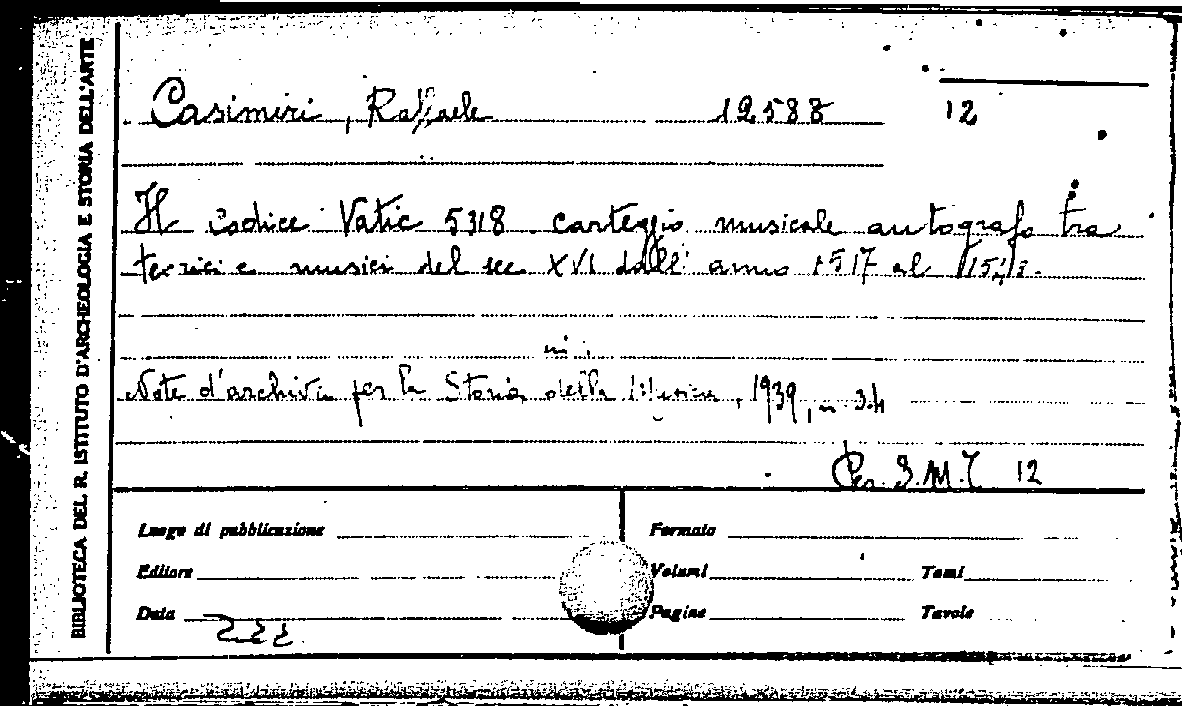 BIBLIOTECA DEL R. ISTITUTO D'ARCHEOLOGIA E STORIA DELL'ARTE
Casimiri, Raffaele 12588 12
Il codice Vatic 5318. carteggio musicale autografo tra
teorici e musici del sec XVI dall' anno 1517 al
in
Note d'archivio per la Storia della Musica, 1939, n. 3.4
Per. S.M.I 12
Luogo di pubblicazione
Formato
Editore
Volumi
Tomi
Data
Pagine
Tavole